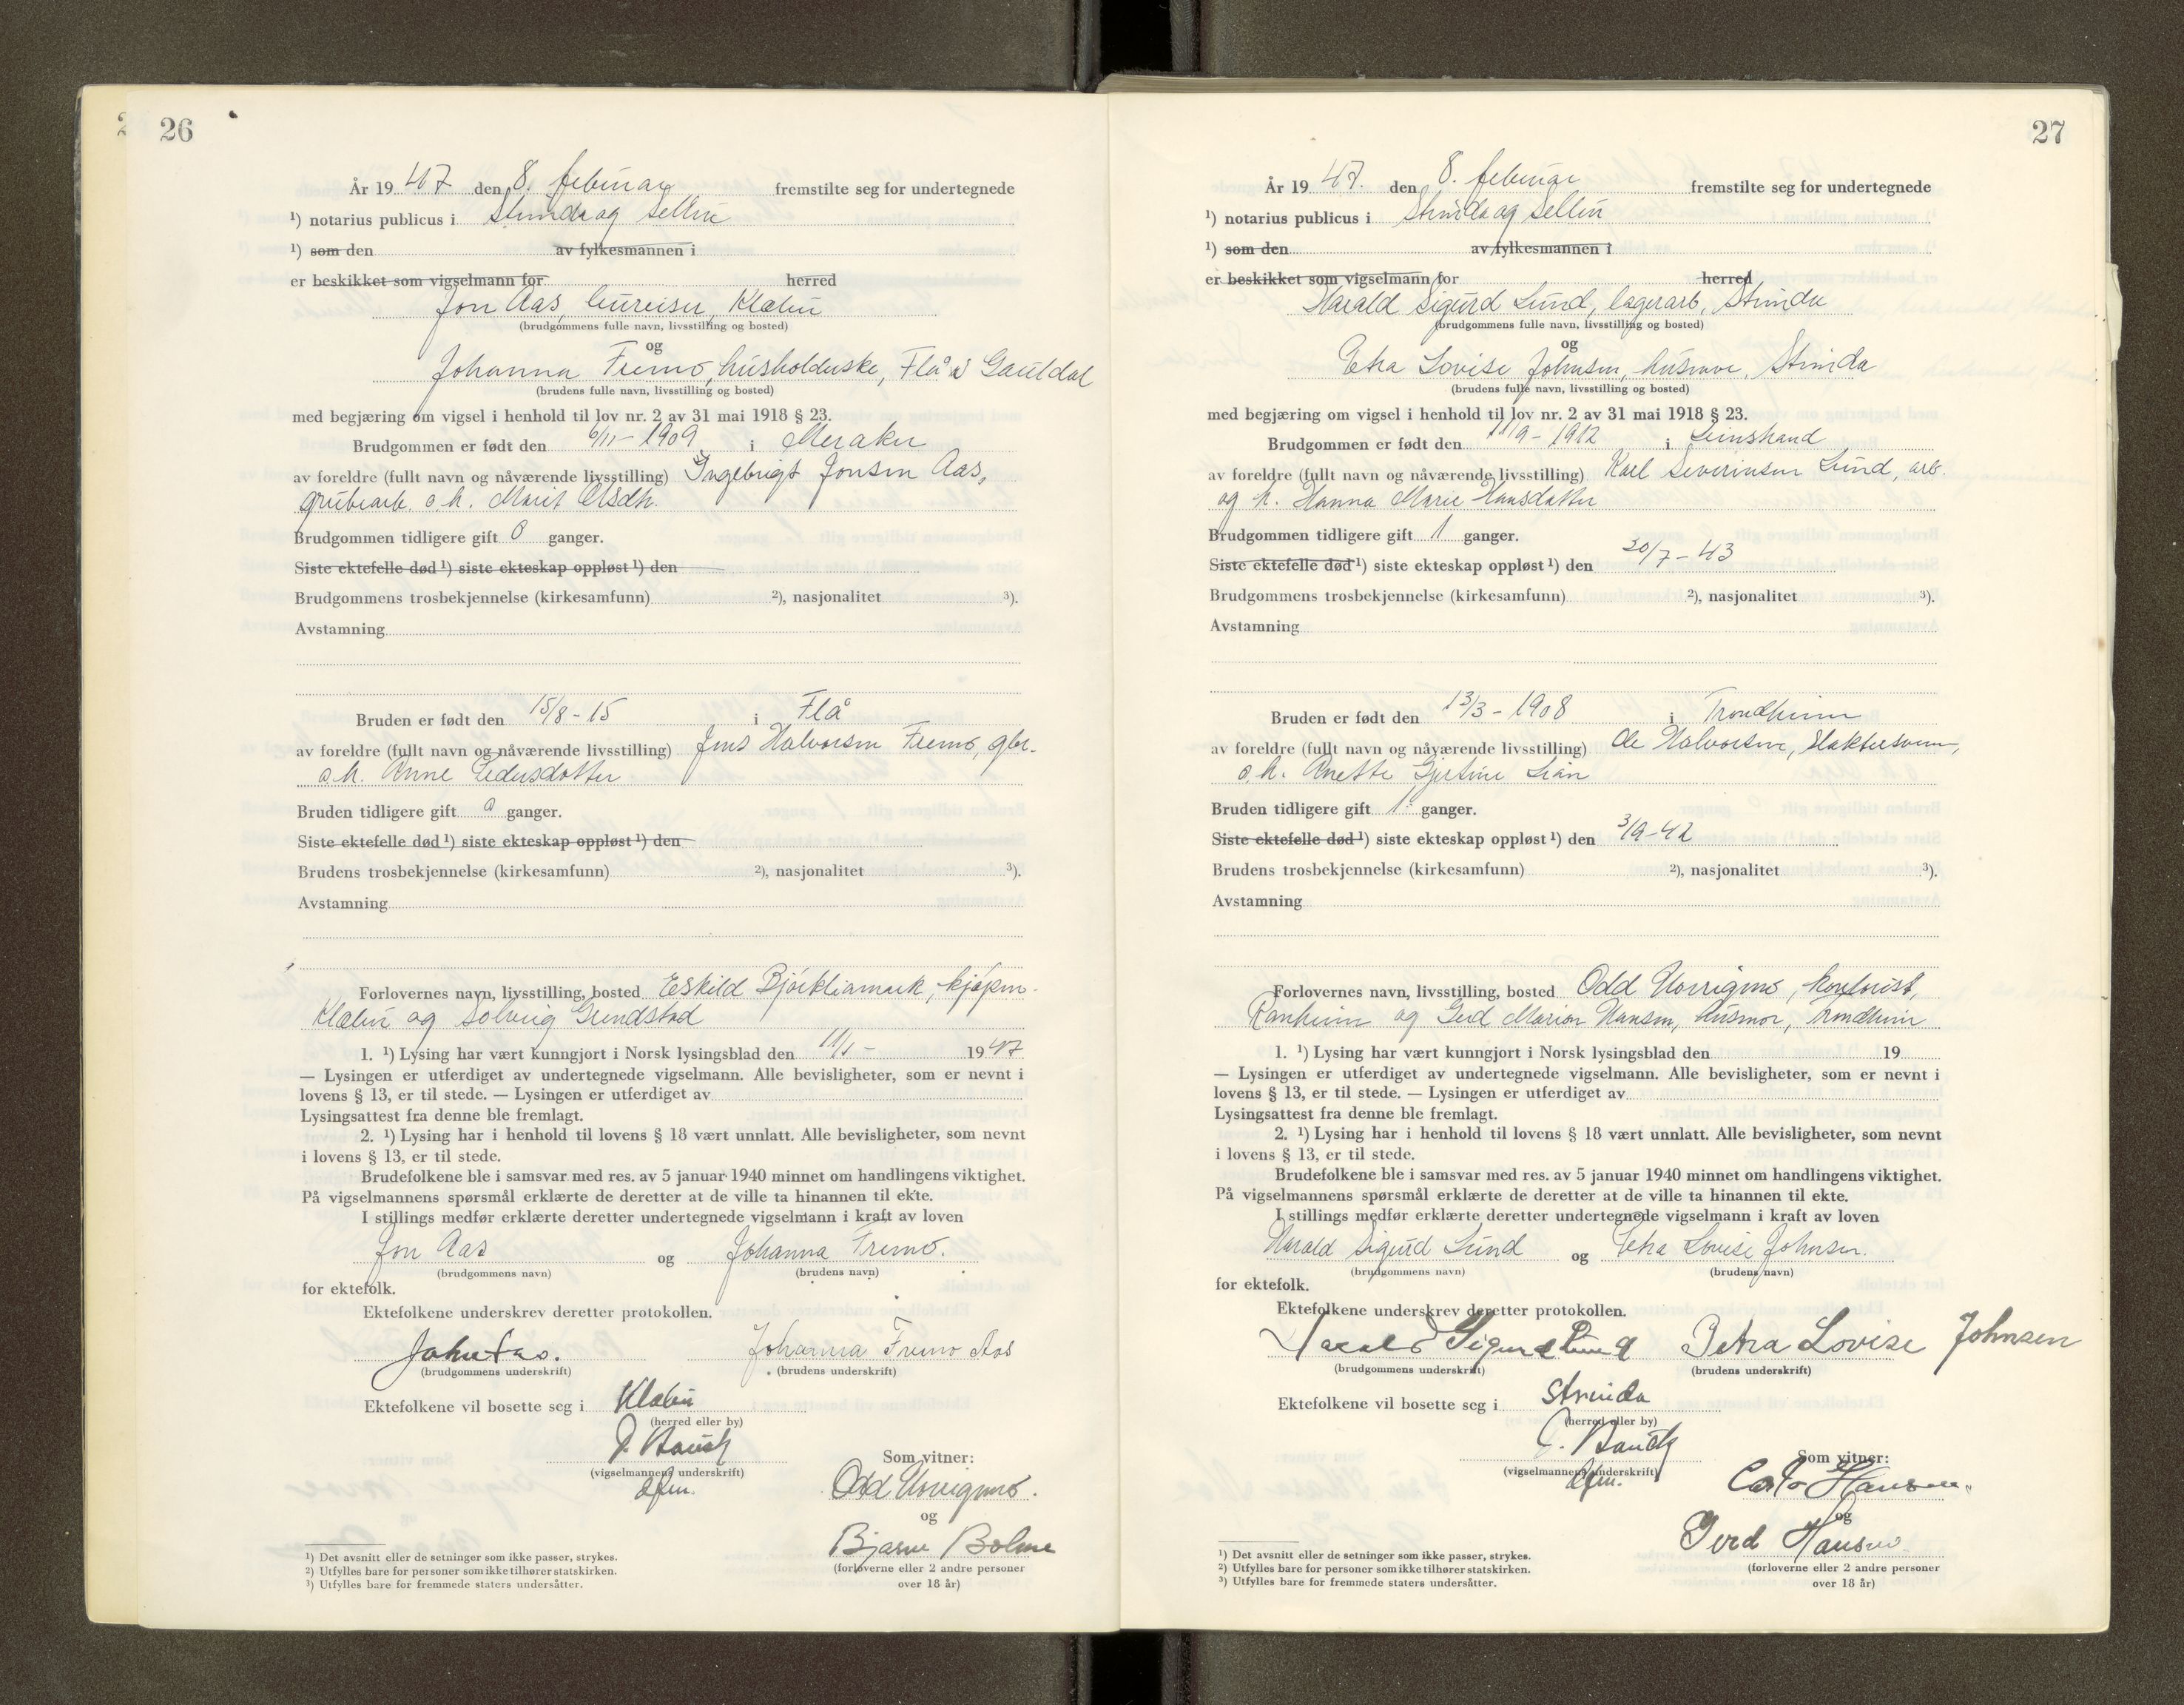 26
År 19 47 den 8. februar fremstilte seg for undertegnede
¹) notarius publicus i Strinda og Selbu
¹) som den av fylkesmannen i
er beskikket som vigselmann for herred
Jon Aas, bureiser, Klæbu
(brudgommens fulle navn, livsstilling og bosted)
og
Johanna Fremo, husholderske, Flå i Gauldal
(brudens fulle navn, livsstilling og bosted)
med begjæring om vigsel i henhold til lov nr. 2 av 31 mai 1918 § 23.
Brudgommen er født den 6/11-1909 i Meraker
av foreldre (fullt navn og nåværende livsstilling) Ingebrigt Jonsen Aas,
grubearb. o.h. Marit Olsdtr.
Brudgommen tidligere gift 0 ganger.
Siste ektefelle død ¹) siste ekteskap oppløst ¹) den
Brudgommens trosbekjennelse (kirkesamfunn) ²), nasjonalitet ³).
Avstamning
Bruden er født den 15/8-15 i Flå
av foreldre (fullt navn og nåværende livsstilling) Jens Halvorsen Fremo, gbr.
o.h. Anne Pedersdatter
Bruden tidligere gift 0 ganger.
Siste ektefelle død ¹) siste ekteskap oppløst ¹) den
Brudens trosbekjennelse (kirkesamfunn) ²), nasjonalitet ³).
Avstamning
Forlovernes navn, livsstilling, bosted Eskild Bjørkliamark, kjøpm.
Klæbu og Solveig Grendstad
1. ¹) Lysing har vært kunngjort i Norsk lysingsblad den 11/1- 1947
— Lysingen er utferdiget av undertegnede vigselmann. Alle bevisligheter, som er nevnt i
lovens § 13, er til stede. — Lysingen er utferdiget av
Lysingsattest fra denne ble fremlagt.
2. ¹) Lysing har i henhold til lovens § 18 vært unnlatt. Alle bevisligheter, som nevnt
i lovens § 13, er til stede.
Brudefolkene ble i samsvar med res. av 5 januar 1940 minnet om handlingens viktighet.
På vigselmannens spørsmål erklærte de deretter at de ville ta hinannen til ekte.
I stillings medfør erklærte deretter undertegnede vigselmann i kraft av loven
Jon Aas og Johanna Fremo.
(brudgommens navn) (brudens navn)
for ektefolk.
Ektefolkene underskrev deretter protokollen.
John Aas. Johanna Fremo Aas
(brudgommens underskrift) (brudens underskrift)
Ektefolkene vil bosette seg i Klæbu
(herred eller by)
(vigselmannens underskrift)
Som vitner:
Odd
og
Bjarne Bolme
(forloverne eller 2 andre personer
over 18 år)
¹) Det avsnitt eller de setninger som ikke passer, strykes.
²) Utfylles bare for personer som ikke tilhører statskirken.
³) Utfylles bare for fremmede staters undersåtter.
27
År 19 47. den 8. februar fremstilte seg for undertegnede
¹) notarius publicus i Strinda og Selbu
¹) som den av fylkesmannen i
er beskikket som vigselmann for herred
Harald Sigurd Lund, lagerarb., Strinda
(brudgommens fulle navn, livsstilling og bosted)
og
Petra Lovise Johnsen, husmor, Strinda
(brudens fulle navn, livsstilling og bosted)
med begjæring om vigsel i henhold til lov nr. 2 av 31 mai 1918 § 23.
Brudgommen er født den 11/9-1912 i Leinstrand
av foreldre (fullt navn og nåværende livsstilling) Karl Severinsen Lund, arb.
og h. Hanna Marie Hansdatter
Brudgommen tidligere gift 1 ganger.
Siste ektefelle død ¹) siste ekteskap oppløst ¹) den 20/7-43
Brudgommens trosbekjennelse (kirkesamfunn) ²), nasjonalitet ³).
Avstamning
Bruden er født den 13/3-1908 i Trondheim
av foreldre (fullt navn og nåværende livsstilling) Ole Halvorsen, slaktersvenn,
o.h. Anette Gjertine Lian
Bruden tidligere gift 1 ganger.
Siste ektefelle død ¹) siste ekteskap oppløst ¹) den 3/9-42
Brudens trosbekjennelse (kirkesamfunn) ²), nasjonalitet ³).
Avstamning
Forlovernes navn, livsstilling, bosted Odd kontorist,
Ranheim og Gerd Marion Hansen, husmor, Trondheim
1. ¹) Lysing har vært kunngjort i Norsk lysingsblad den 19
— Lysingen er utferdiget av undertegnede vigselmann. Alle bevisligheter, som er nevnt i
lovens § 13, er til stede. — Lysingen er utferdiget av
Lysingsattest fra denne ble fremlagt.
2. ¹) Lysing har i henhold til lovens § 18 vært unnlatt. Alle bevisligheter, som nevnt
i lovens § 13, er til stede.
Brudefolkene ble i samsvar med res. av 5 januar 1940 minnet om handlingens viktighet.
På vigselmannens spørsmål erklærte de deretter at de ville ta hinannen til ekte.
I stillings medfør erklærte deretter undertegnede vigselmann i kraft av loven
Harald Sigurd Lund og Petra Lovise Johnsen.
(brudgommens navn) (brudens navn)
for ektefolk.
Ektefolkene underskrev deretter protokollen.
Harald Sigurd Lund Petra Lovise Johnsen
(brudgommens underskrift) (brudens underskrift)
Ektefolkene vil bosette seg i Strinda
(herred eller by)
(vigselmannens underskrift)
Som vitner:
Carlo Hansen
og
Gerd Hansen
(forloverne eller 2 andre personer
over 18 år)
¹) Det avsnitt eller de setninger som ikke passer, strykes.
²) Utfylles bare for personer som ikke tilhører statskirken.
³) Utfylles bare for fremmede staters undersåtter.